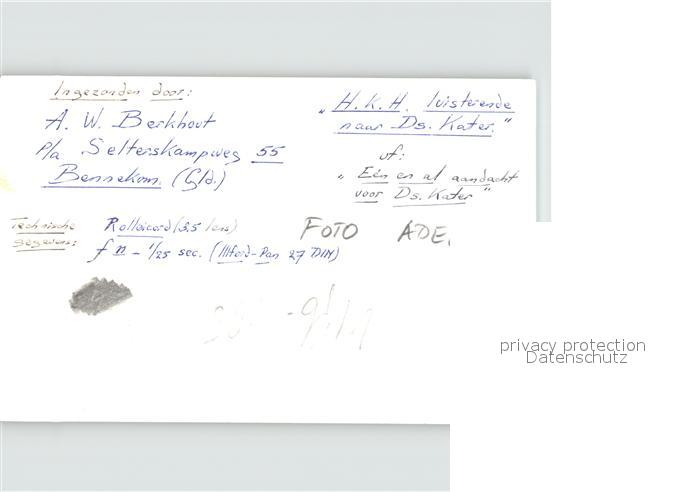 Ingezonden door:
A. W. Berkhout
p/a Selterskampweg 55
Bennekom. (Gld.)
„H.K.H. luisterende
naar Ds. Kater."
of:
„Eén en al aandacht
voor Ds. Kater"
Technische gegevens:
Rolleicord (3.5 lens)
f 11 - 1/25 sec. (Ilford-Pan 27 DIN)
FOTO ADE.
privacy protection
Datenschutz